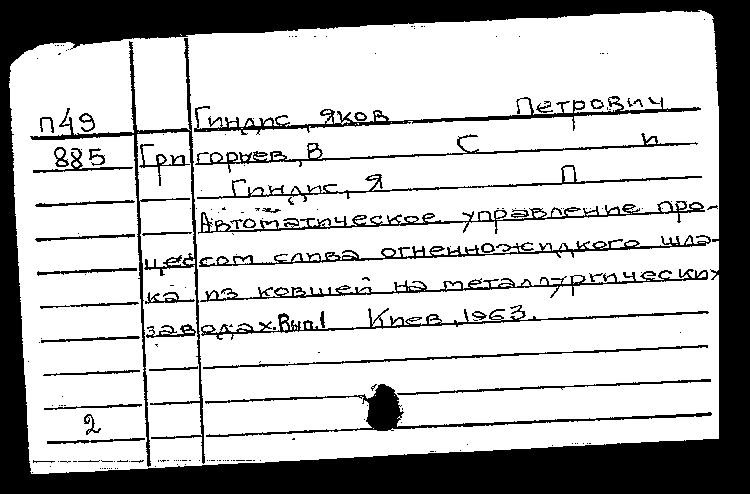 П49 Гиндис, Яков Петрович
885 Григорьев, В С и
Гиндис, Я П
Автоматическое управление про-
цессом слива огненножидкого шла-
ка из ковшей на металлургических
заводах. Вып.1 Киев, 1963.
2